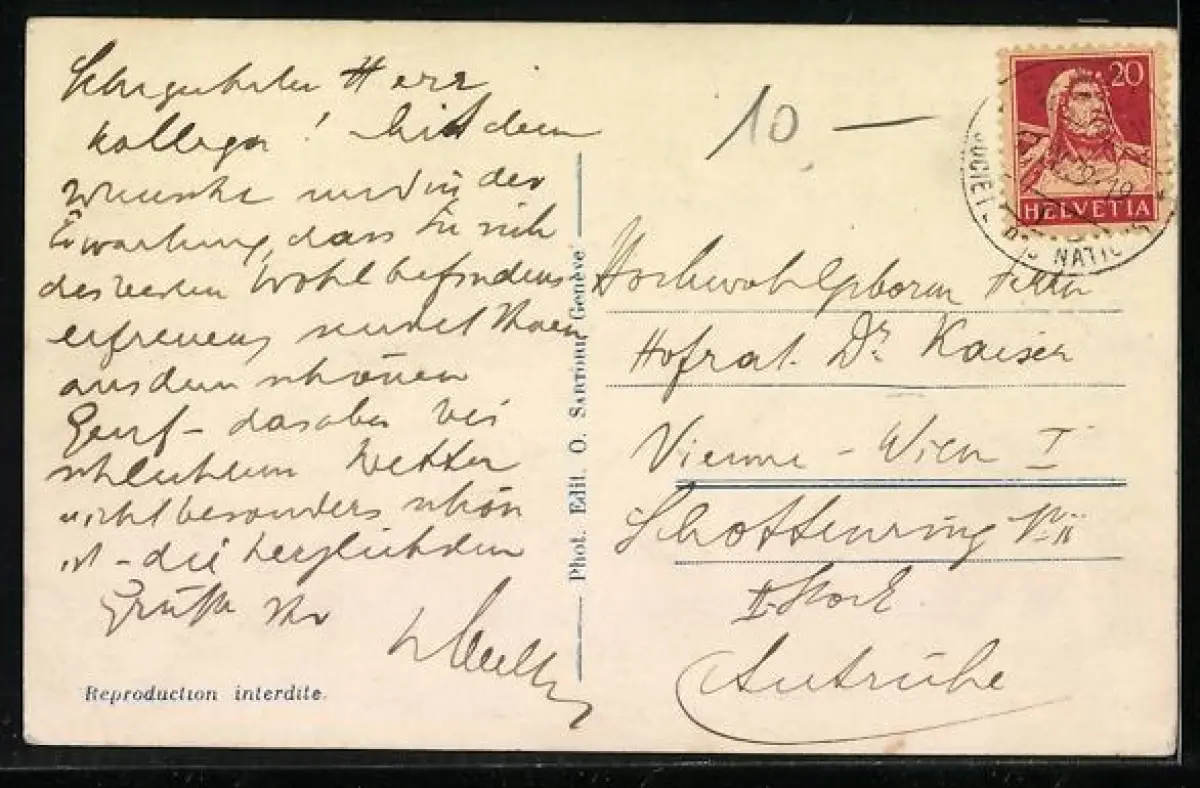 Sehrgeehrter Herr
Kollega! Mit dem
Wunsche und in der
Erwartung, dass Sie sich
des besten Wohlbefindens
erfreuen, sendet Ihnen
aus dem schönen
Genf – das aber bei
schlechtem Wetter
nicht besonders schön
ist – die herzlichsten
Grüße Ihr
Reproduction interdite.
Phot. Edit. O. SARTORI. Genève
10 —
20
HELVETIA
SOCIET
NATIO
Hochwohlgeboren Herrn
Hofrat Dr. Kaiser
Vienne – Wien I
Schottenring Nr.
II. Stock
Autriche